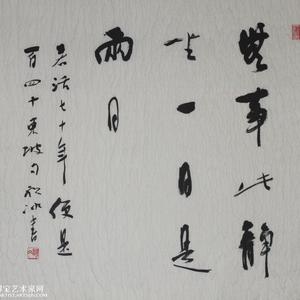 無事此靜
坐一日是
兩日
若活七十年便是
百四十東坡句冰書
宝艺术家网